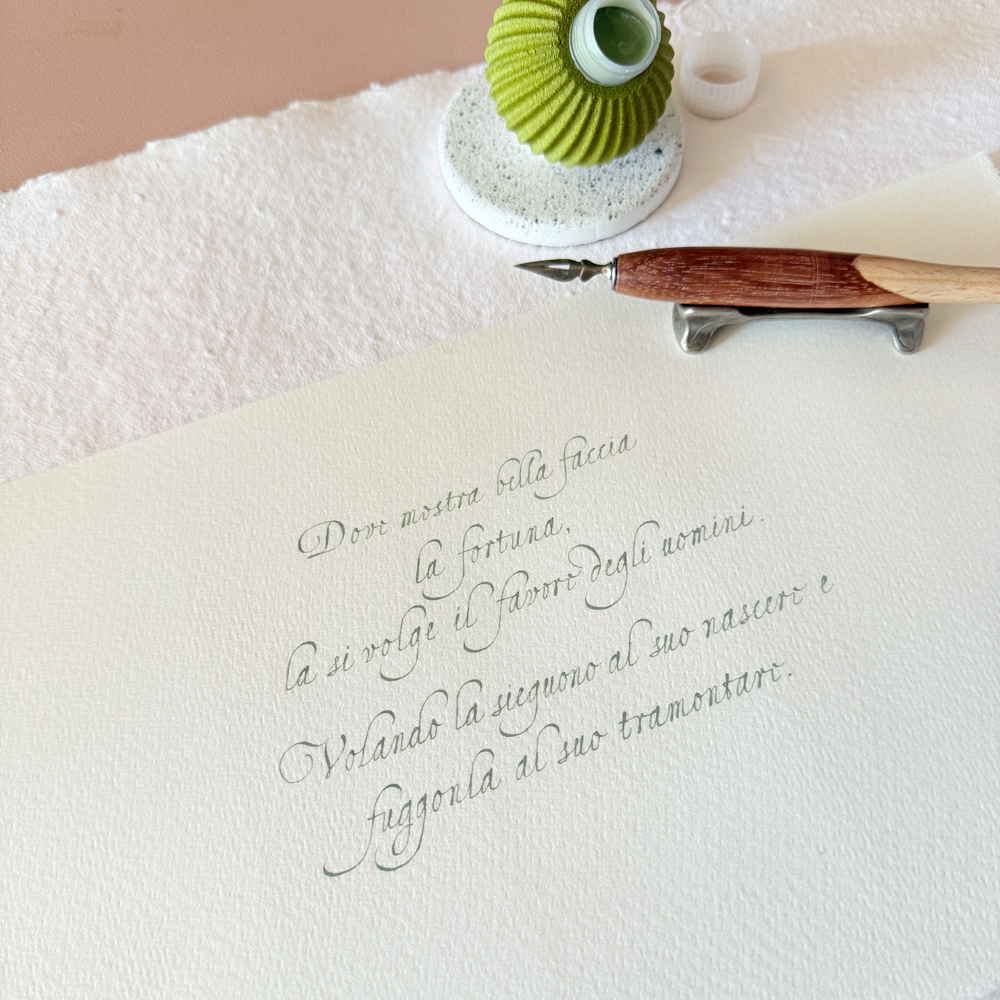 Dove mostra bella faccia
la fortuna,
la si volge il favore degli uomini.
Volando la sieguono al suo nascere e
fuggonla al suo tramontare.